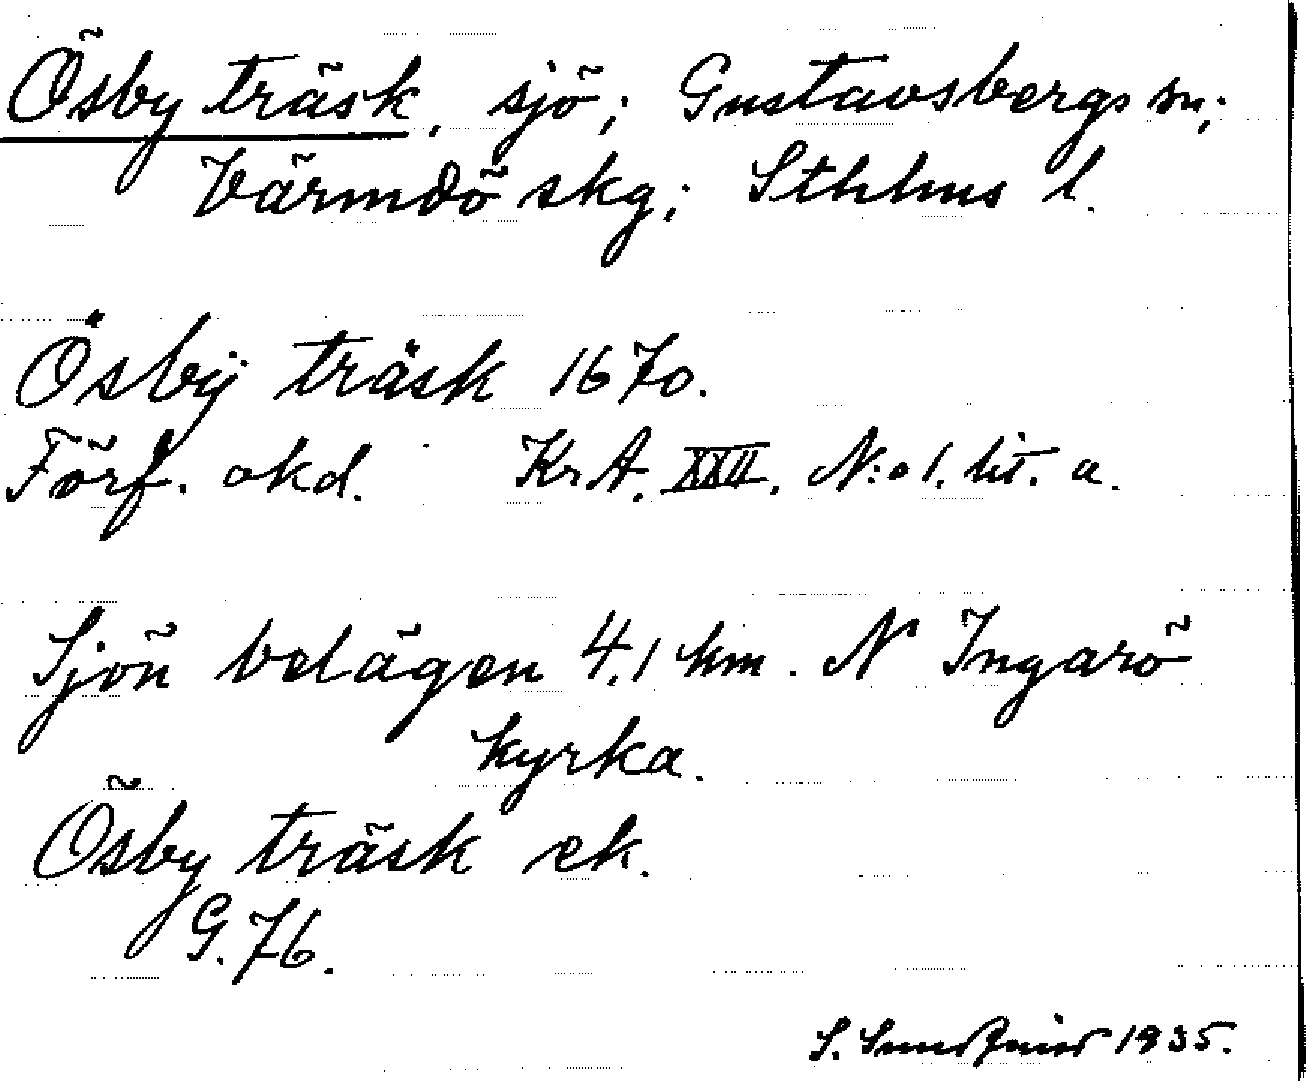 Ösby träsk, sjö; Gustavsbergs sn;
Värmdö skg; Sthlms l.
Ösbÿ träsk 1670.
Förf. okd. KrA. XXII. N:o 1. lit. a.
Sjön belägen 4,1 km. N Ingarö
kyrka.
Ösby träsk ek.
G. 76.
S. 1935.